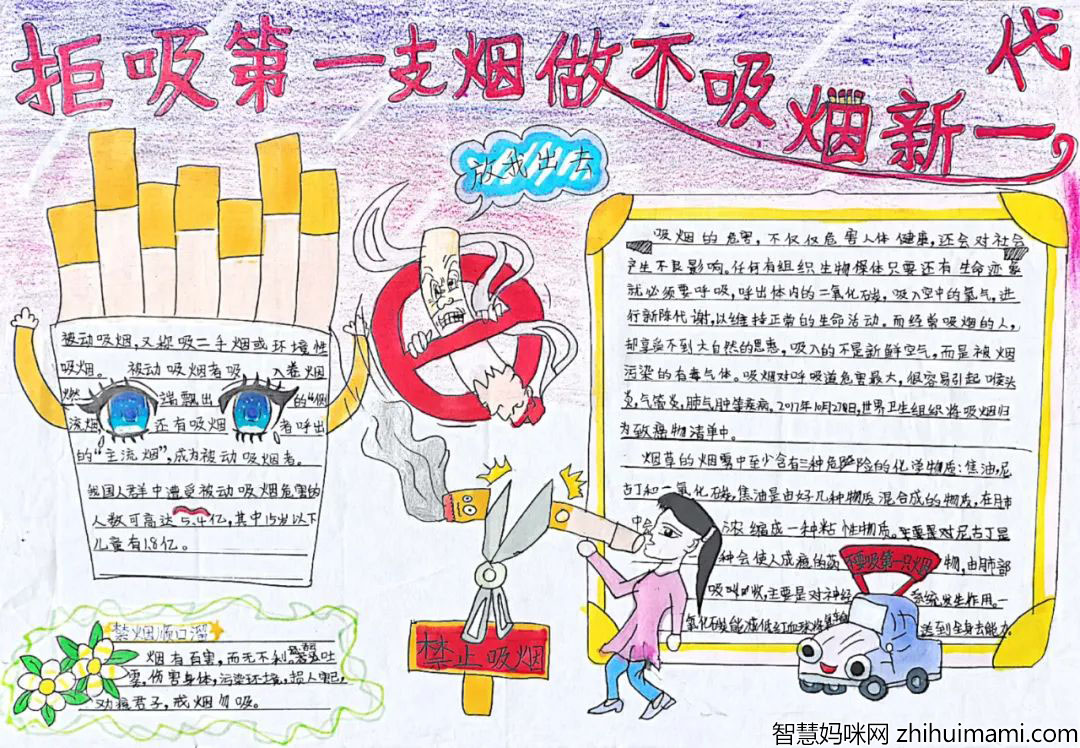 拒吸第一支烟做不吸烟新一代
放我出去
被动吸烟,又称吸二手烟或环境性
吸烟。 被动吸烟者吸 入卷烟
燃 端飘出 的“侧
流烟 还有吸烟 者呼出
的“主流烟”,成为被动吸烟者。
我国人群中遭受被动吸烟危害的
人数可高达5.4亿,其中15岁以下
儿童有1.8亿。
吸烟的危害,不仅仅危害人体健康,还会对社会
产生不良影响。任何有组织生物媒体只要还有生命迹象
就必须要呼吸,呼出体内的二氧化石炭,吸入空中的氧气,进
行新陈代谢,以维持正常的生命活动。而经常吸烟的人,
却享受不到大自然的恩惠,吸入的不是新鲜空气,而是被烟
污染的有毒气体。吸烟对呼吸道危害最大,很容易引起喉头
炎,气管炎,肺气肿等疾病,2017年10月27日,世界卫生组织将吸烟归
为致癌物清单中。
烟草的烟雾中至少含有三种危险的化学物质:焦油,尼
古丁和一氧化碳,焦油是由好几种物质混合成的物质,在肺
中会 浓缩成一种粘性物质。主要是对尼古丁是
种会使人成瘾的药 物,由肺部
吸收,主要是对神经 系统发生作用。一
氧化碳能减低红血球将 送到全身去能力。
不要吸第一只烟
禁止吸烟
禁烟顺口溜
烟有百害,而无不利。吞云吐
雾,伤害身体,污染环境,损人
劝 君子,戒烟勿吸。
智慧妈咪网 zhihuimami.com